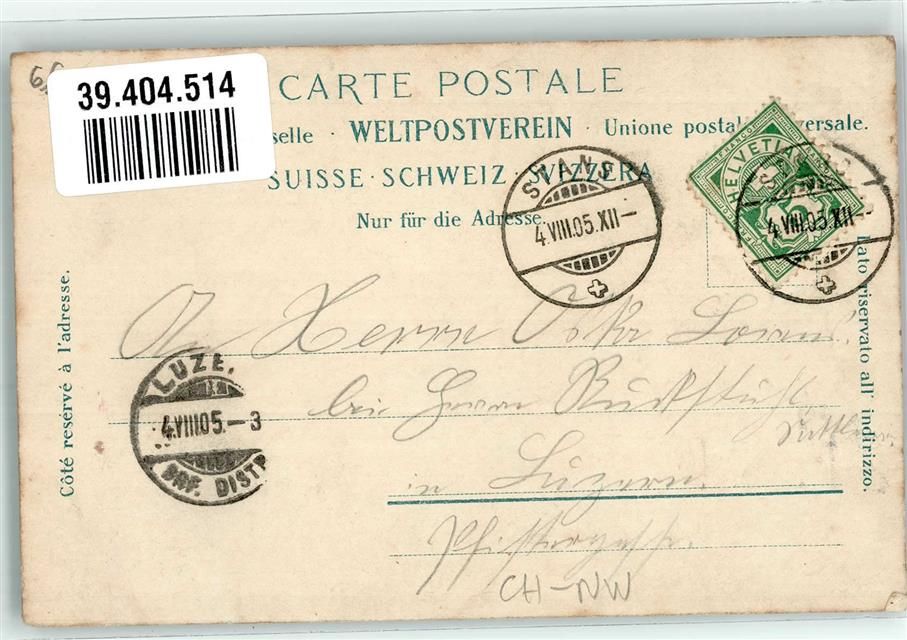 39.404.514
CARTE POSTALE
selle · WELTPOSTVEREIN · Unione postal versale.
SUISSE · SCHWEIZ · SVIZZERA
Nur für die Adresse.
Côté reservé à l'adresse.
Lato riservato all' indirizzo.
HELVETIA
FRANCO
5
STANS
4.VIII.05.XII-
4.VIII.05.XII-
LUZE.
4.VIII05.-3
BRF. DISTR
An Herrn Oskar
bei Herrn Ruckstuhl
in Luzern.
Pfistergasse.
CH-NW